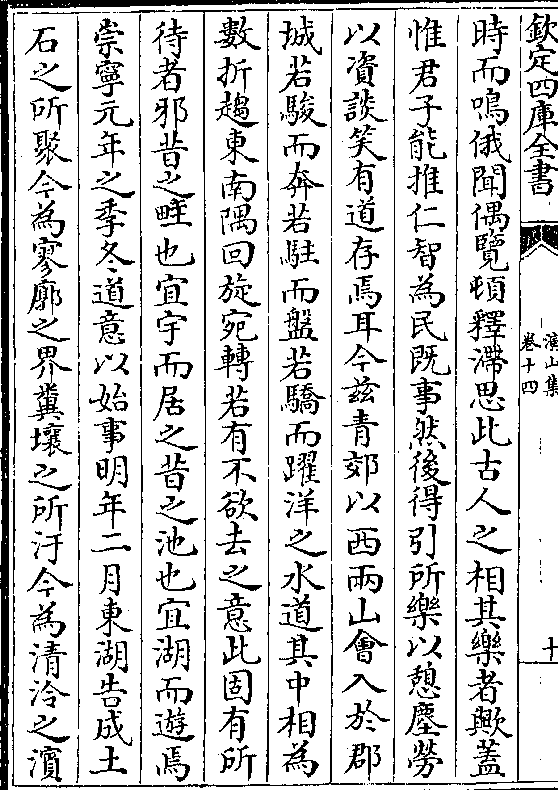 欽定四庫全書
演山集
卷十四
十
時而鳴俄聞偶覽頓釋滯思此古人之相其樂者歟蓋
惟君子能推仁智為民既事然後得引所樂以憩塵勞
以資談笑有道存焉耳今兹青郊以西兩山會入於郡
城若駿而奔若駐而盤若驕而躍洋之水道其中相為
數折趨東南隅回旋宛轉若有不欲去之意此固有所
待者邪昔之畦也宜宇而居之昔之池也宜湖而遊焉
崇寧元年之季冬道意以始事明年二月東湖告成土
石之所聚今為寥廓之界糞壤之所汙今為清泠之濵